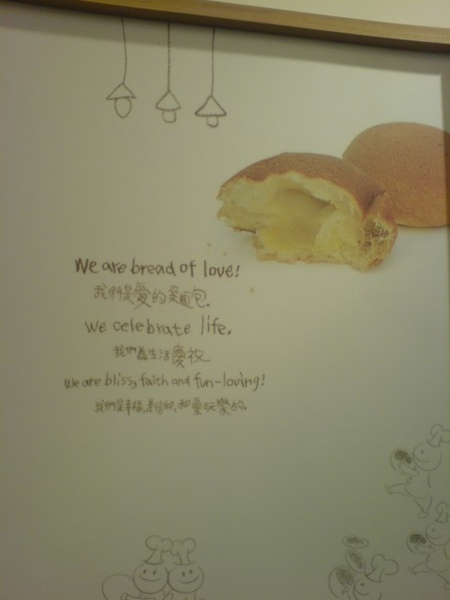 We are bread of love!
我們是愛的麵包.
We celebrate life.
我們為生活慶祝
We are bliss, faith and fun-loving!
我們是幸福,是信仰,和愛玩樂的.